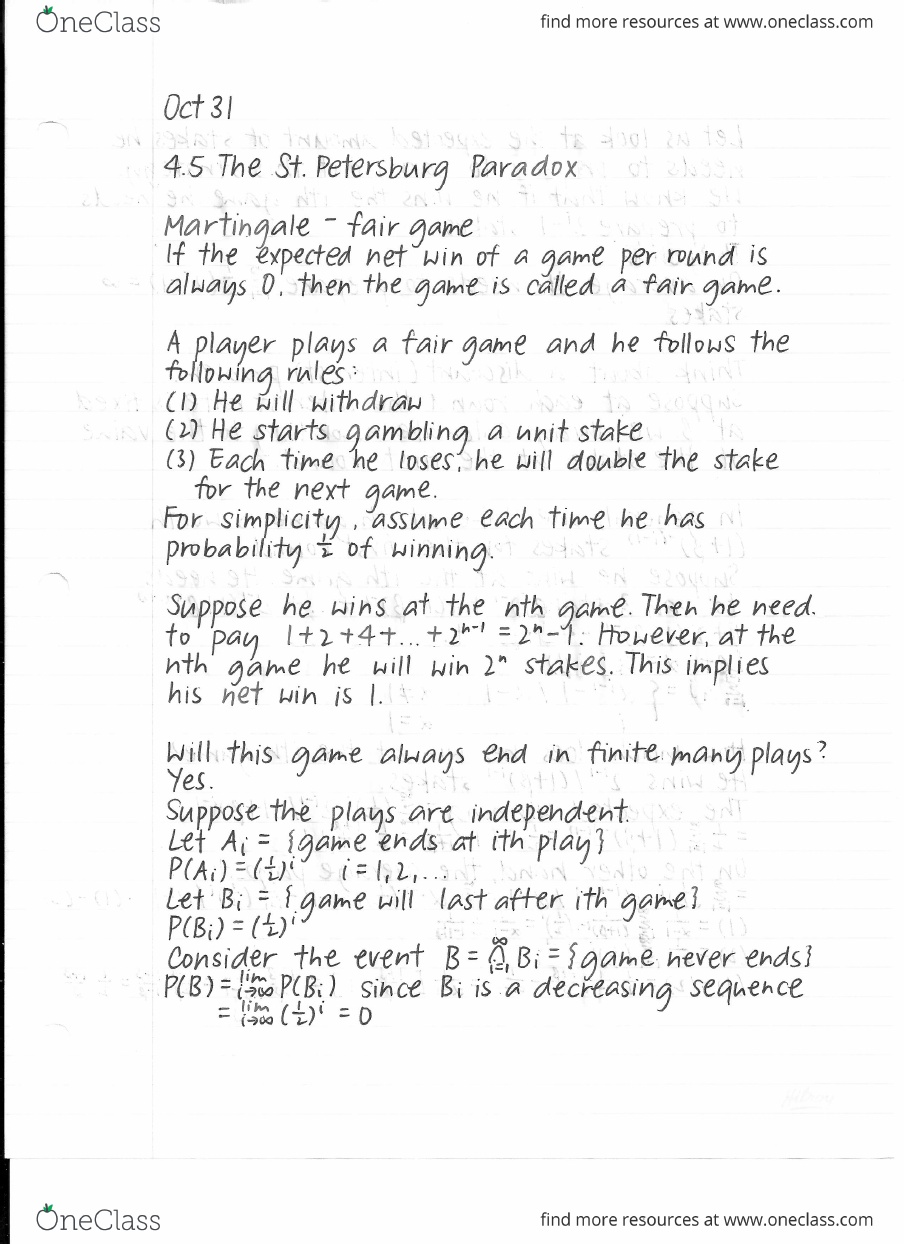 OneClass
find more resources at www.oneclass.com
Oct 31
4.5 The St. Petersburg Paradox
Martingale - fair game
If the expected net win of a game per round is
always 0, then the game is called a fair game.
A player plays a fair game and he follows the
following rules:
(1) He will withdraw
(2) He starts gambling a unit stake
(3) Each time he loses, he will double the stake
for the next game.
For simplicity, assume each time he has
probability 1/2 of winning.
Suppose he wins at the nth game. Then he need
to pay 1+2+4+...+2ⁿ⁻¹ = 2ⁿ-1. However, at the
nth game he will win 2ⁿ stakes. This implies
his net win is 1.
Will this game always end in finite many plays?
Yes.
Suppose the plays are independent.
Let Aᵢ = {game ends at ith play}
P(Aᵢ) = (1/2)ⁱ i = 1, 2, ...
Let Bᵢ = {game will last after ith game}
P(Bᵢ) = (1/2)ⁱ
Consider the event B = ∩_{i=1}^{∞} Bᵢ = {game never ends}
P(B) = lim_{i→∞} P(Bᵢ) since Bᵢ is a decreasing sequence
= lim_{i→∞} (1/2)ⁱ = 0
OneClass
find more resources at www.oneclass.com